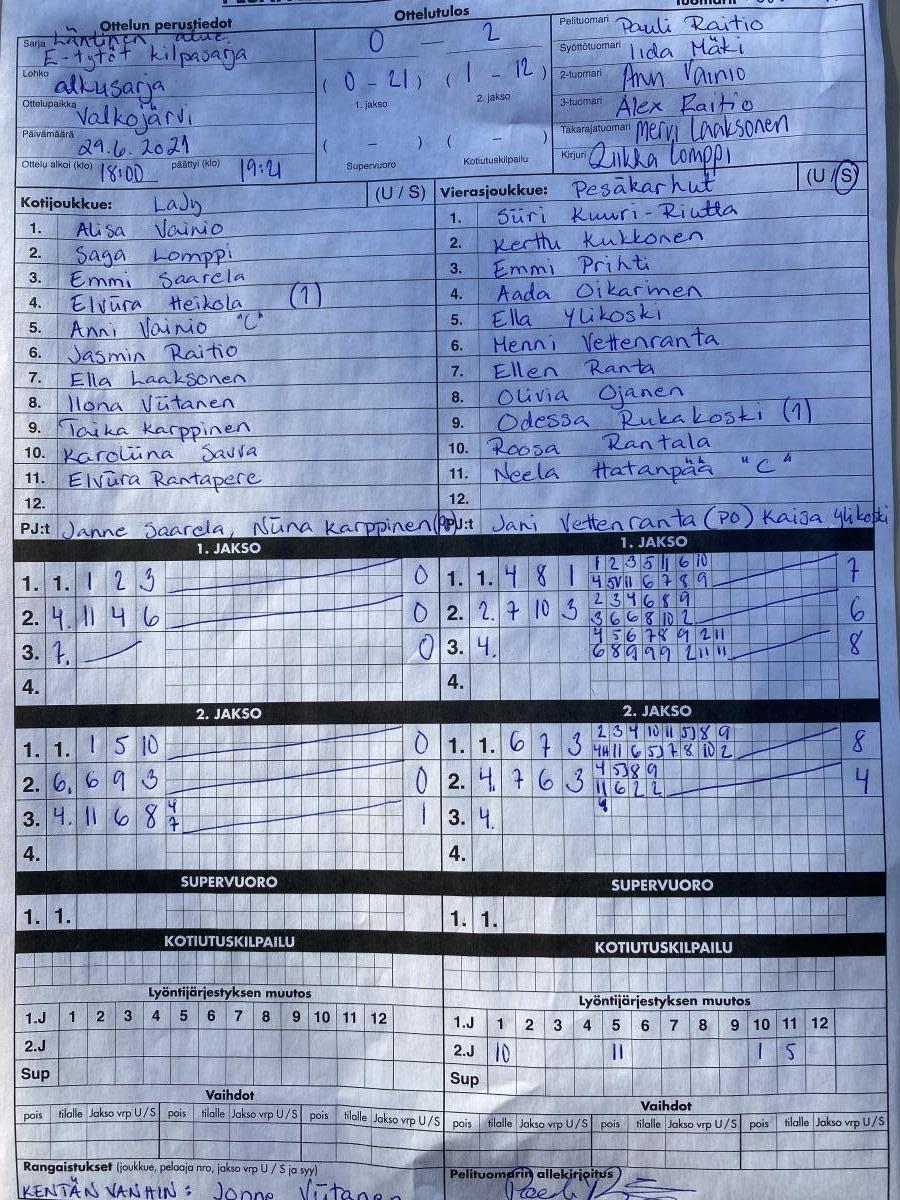 Ottelun perustiedot
Ottelutulos
Sarja Läntinen alue.
E-tytöt kilpasarja
Lohko
alkusarja
Ottelupaikka
Valkojärvi
Päivämäärä
29.6.2021
Ottelu alkoi (klo) 18:00 päättyi (klo) 19:21
0 — 2
( 0 - 21 ) ( 1 - 12 )
1. jakso 2. jakso
( - ) ( - )
Supervuoro Kotiutuskilpailu
Pelituomari Pauli Raitio
Syöttötuomari Iida Mäki
2-tuomari Ann Vainio
3-tuomari Alex Raitio
Takarajatuomari Mervi Laaksonen
Kirjuri Lomppi
Kotijoukkue: LaJy (U / S)
1. Alisa Vainio
2. Saga Lomppi
3. Emmi Saarela
4. Elviira Heikola (1)
5. Anni Vainio "C"
6. Jasmin Raitio
7. Ella Laaksonen
8. Ilona Viitanen
9. Taika Karppinen
10. Karoliina Savva
11. Elviira Rantapere
12.
PJ:t Janne Saarela, Niina Karppinen
Vierasjoukkue: Pesäkarhut (U / S)
1. Siiri Kuuri-Riutta
2. Kerttu Kukkonen
3. Emmi Prihti
4. Aada Oikarinen
5. Ella Ylikoski
6. Henni Vettenranta
7. Ellen Ranta
8. Olivia Ojanen
9. Odessa Rukakoski (1)
10. Roosa Rantala
11. Neela Hatanpää "C"
12.
PJ:t Jani Vettenranta (PO) Kaisa Ylikoski
1. JAKSO
1. 1. 1 2 3 0
2. 4. 11 4 6 0
3. 7. 0
4.
1. JAKSO
1. 1. 4 8 1 1 2 3 5 11 6 10 7
2. 2. 7 10 3 2 3 4 6 8 9 6
3 6 6 8 10 2
3. 4. 4 5 6 7 8 9 2 11 8
6 8 9 9 9 2 11 11
4.
2. JAKSO
1. 1. 1 5 10 0
2. 6. 6 9 3 0
3. 4. 11 6 8 4 1
7
4.
2. JAKSO
1. 1. 6 7 3 2 3 4 10 11 5 8 9 8
2. 4. 7 6 3 4 5 8 9 4
11 6 2 2
3. 4. 4
4.
SUPERVUORO
1. 1.
SUPERVUORO
1. 1.
KOTIUTUSKILPAILU
KOTIUTUSKILPAILU
Lyöntijärjestyksen muutos
1.J 1 2 3 4 5 6 7 8 9 10 11 12
2.J
Sup
Lyöntijärjestyksen muutos
1.J 1 2 3 4 5 6 7 8 9 10 11 12
2.J 10 11 1 5
Sup
Vaihdot
pois tilalle Jakso vrp U / S pois tilalle Jakso vrp U / S pois tilalle Jakso vrp U / S
Vaihdot
pois tilalle Jakso vrp U / S pois tilalle Jakso vrp U / S pois tilalle Jakso vrp U / S
Rangaistukset (joukkue, pelaaja nro, jakso vrp U / S ja syy)
KENTÄN VANHIN: Jonne Viitanen
Pelituomarin allekirjoitus